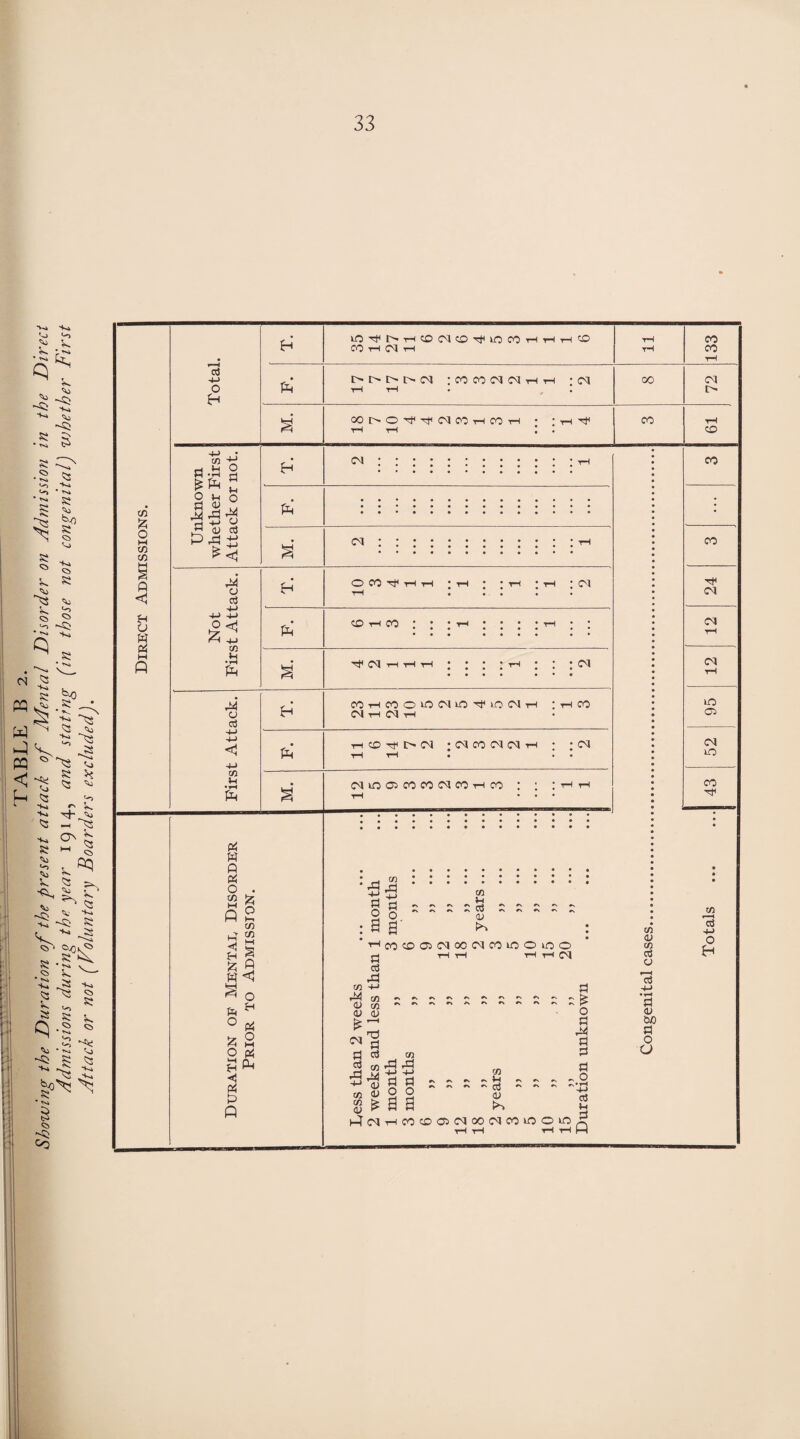 33
TABLE B 2.
Showing the Duration of the present attack of Mental Disorder on Admission in the Direct
Admissions during the year 1914, and stating (in those not congenital) whether First
Attack or not (Voluntary Boarders excluded).
DIRECT ADMISSIONS.
DURATION OF MENTAL DISORDER PRIOR TO ADMISSION.
First Attack. Not First Attack. Unknown whether First Attack or not. Total.
M. F. T. M. F. T. M. F. T. M. F. T.
Less than 2 weeks ... 12 11 23 4 6 10 2 ... 2 18 17 35
2 weeks and less than 1 month ... 5 6 11 2 1 3 ... ... ... 7 7 14
1 month ,, 3 months ... 9 14 23 1 3 4 ... ... ... 10 17 27
3 months ,, 6 ,, ... 3 7 10 1 ... 1 ... ... ... 4 7 11
6 ,, ,, 9 ,, ... 3 2 5 1 ... 1 ... ... ... 4 2 6
9 ,, ,, 12 ,, ... 2 ... 2 ... ... ... ... ... ... 2 ... 2
12 ,, ,, 18 ,, ... 3 2 5 ... 1 1 ... ... ... 3 3 6
18 ,, ,, 2 years ... 1 3 4 ... ... ... ... ... ... 1 3 4
2 years ,, 3 ,, ... 3 2 5 ... ... ... ... ... ... 3 2 5
3 ,, ,, 5 ,, ... ... 2 2 1 ... 1 ... ... ... 1 2 3
5 ,, ,, 10 ,, ... ... 1 1 ... ... ... ... ... ... ... 1 1
10 ,, ,, 15 ,, ... ... ... ... ... 1 1 ... ... ... ... 1 1
15 ,, ,, 20 ,, ... 1 ... 1 ... ... ... ... ... ... 1 ... 1
Duration unknown ... 1 2 3 2 ... 2 1 ... 1 4 2 6
Congenital cases........ 3 8 11
Totals ... 43 52 95 12 12 24 3 ... 3 61 72 133